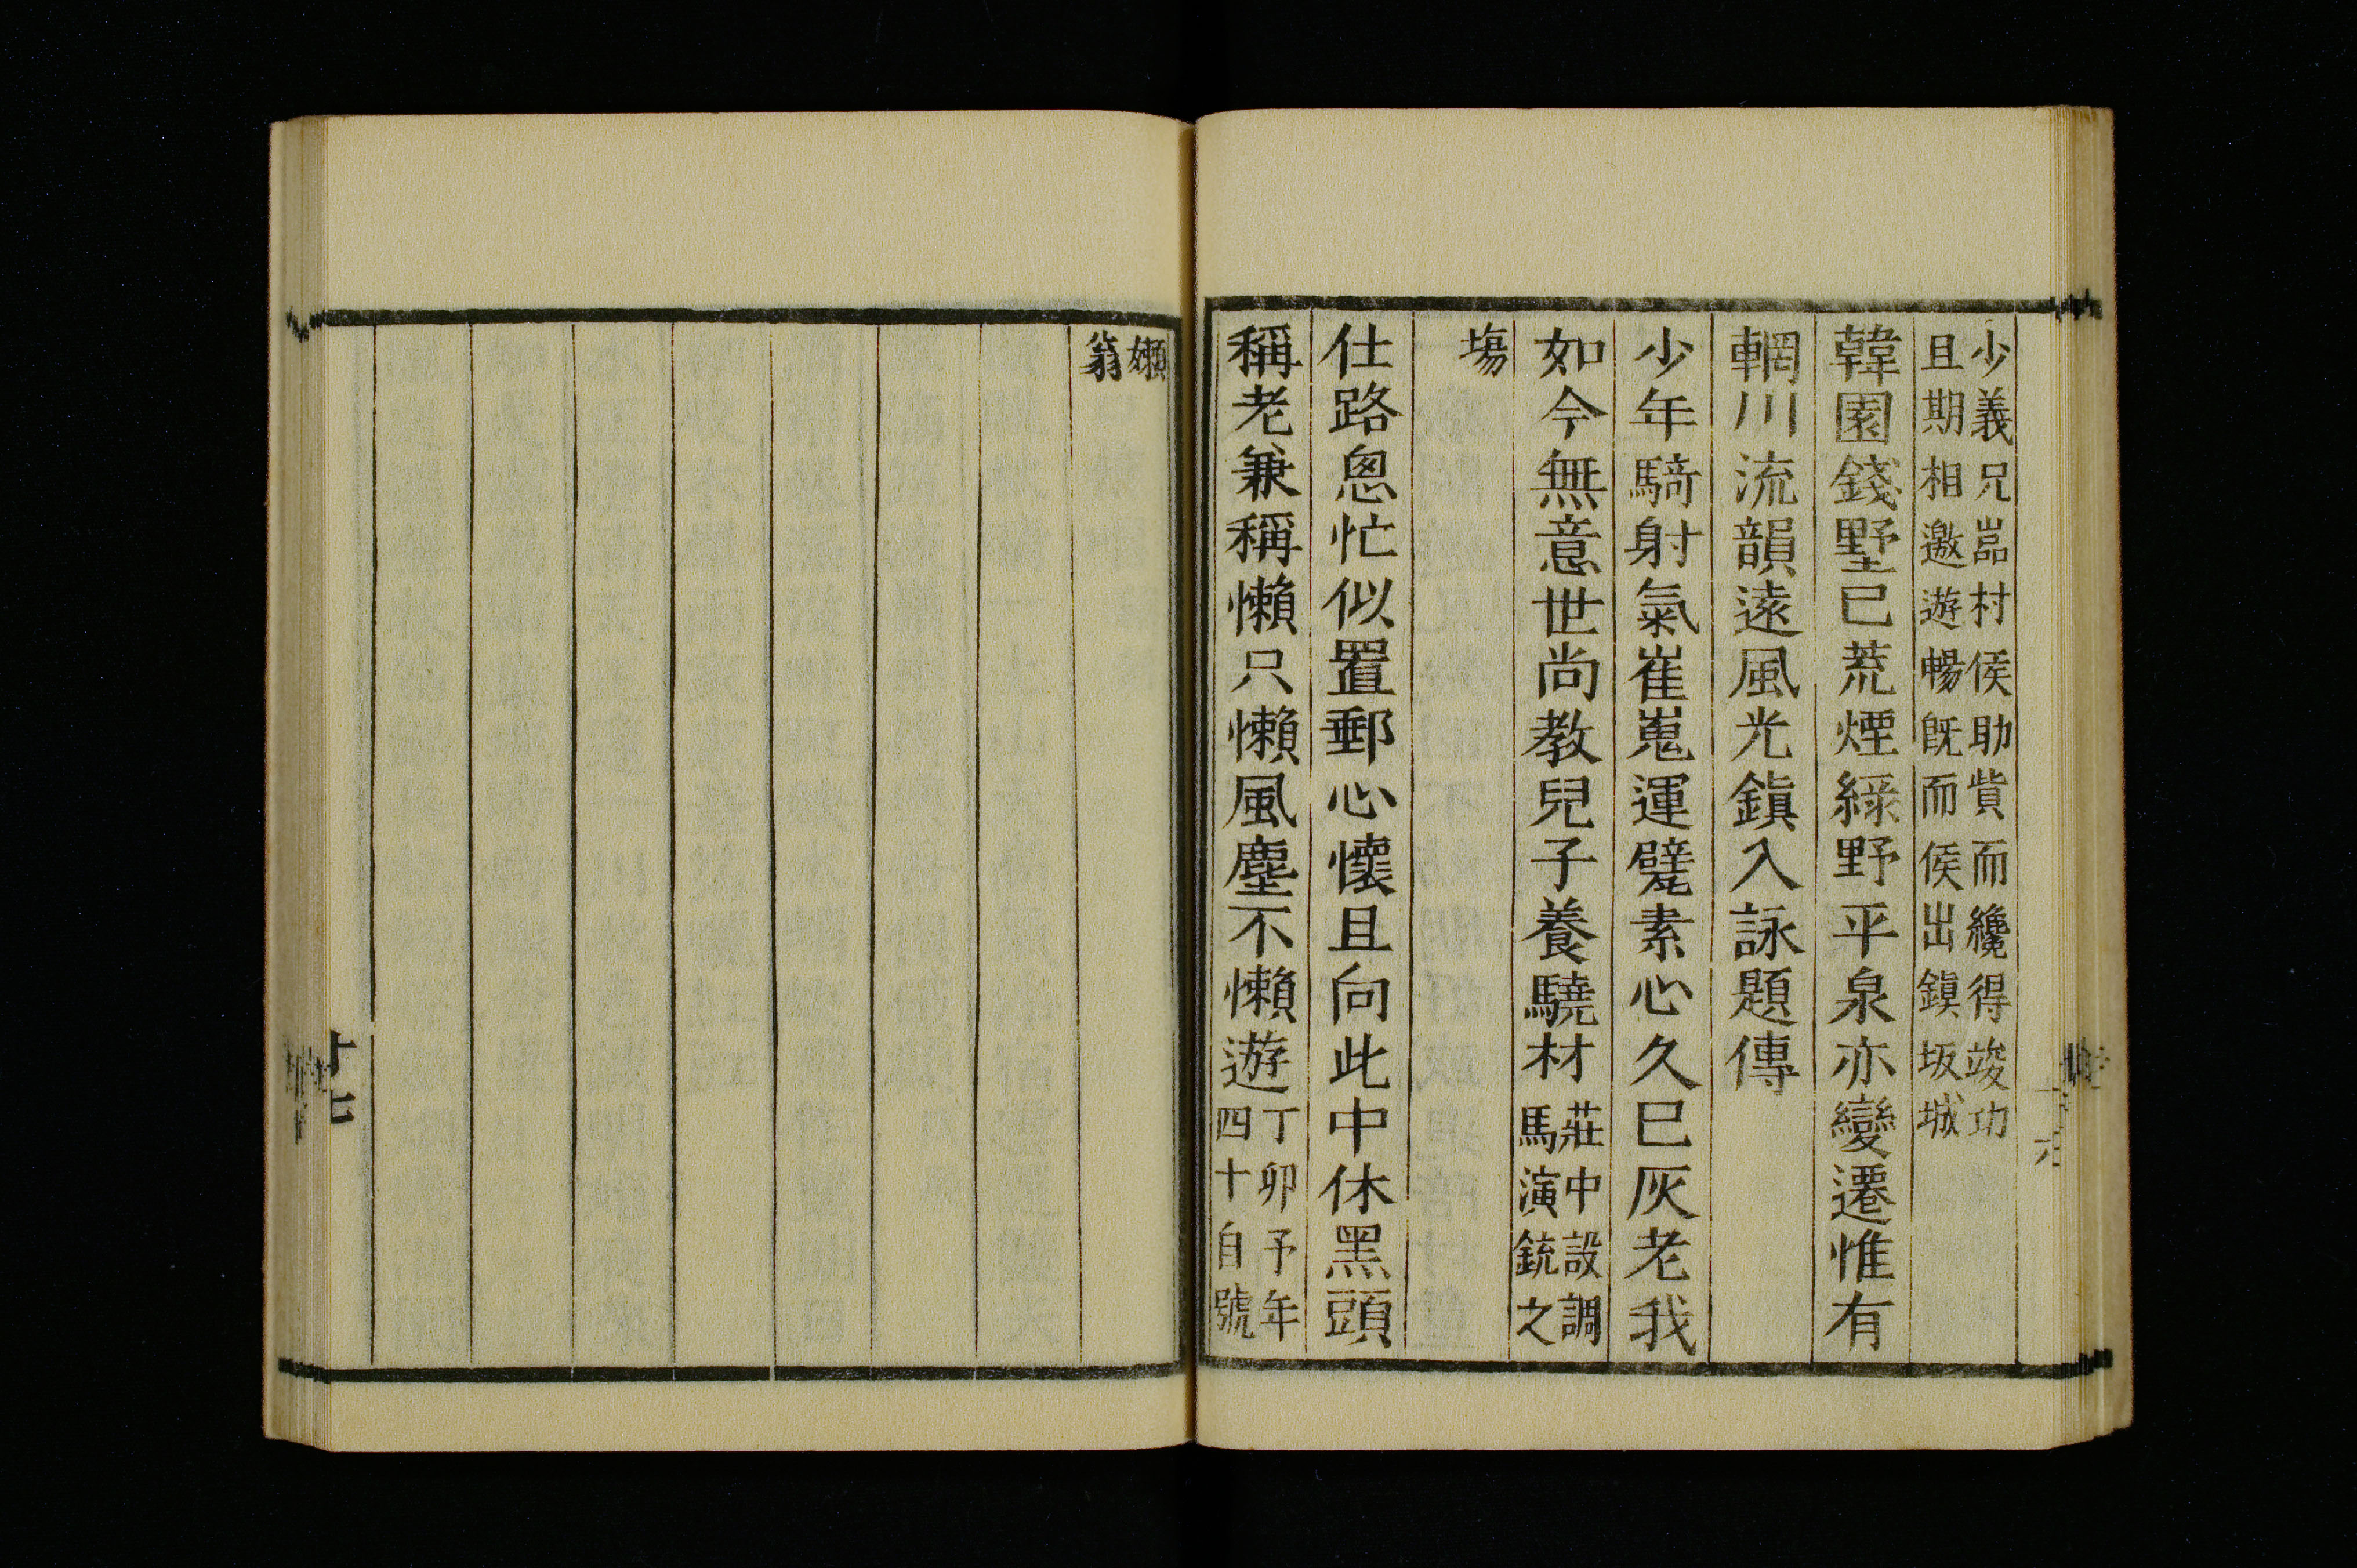 少義兄嵓村侯助貲而纔得竣功
且期相邀遊暢既而侯出鎭坂城
韓園錢墅已荒煙綠野平泉亦變遷惟有
輞川流韻遠風光鎭入詠題傳
少年騎射氣崔嵬運甓素心久已灰老我
如今無意世尚教兒子養驍材莊中設調
馬演銃之
塲
仕路悤忙似置郵心懷且向此中休黑頭
稱老兼稱懶只懶風塵不懶遊丁卯予年
四十自號
嬾
翁
十七